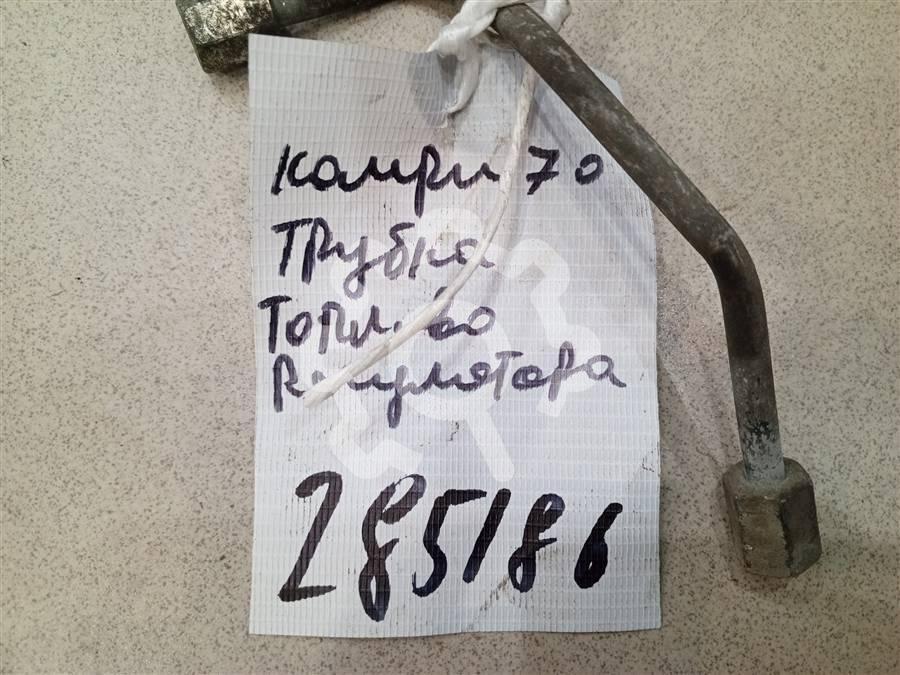 Камри 70
Трубка
Топливо
Регулятора
285186